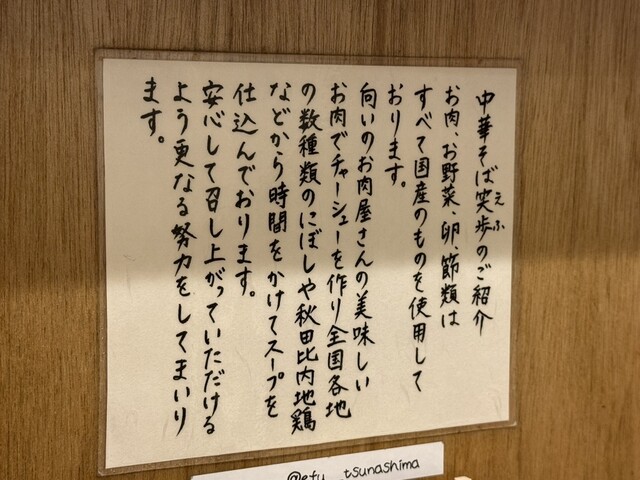 中華そば笑歩のご紹介
えふ
お肉、お野菜、卵、節類は
すべて国産のものを使用して
おります。
向いのお肉屋さんの美味しい
お肉でチャーシューを作り全国各地
の数種類のにぼしや秋田比内地鶏
などから時間をかけてスープを
仕込んでおります。
安心して召し上がっていただける
よう更なる努力をしてまいり
ます。
@efu__tsunashima